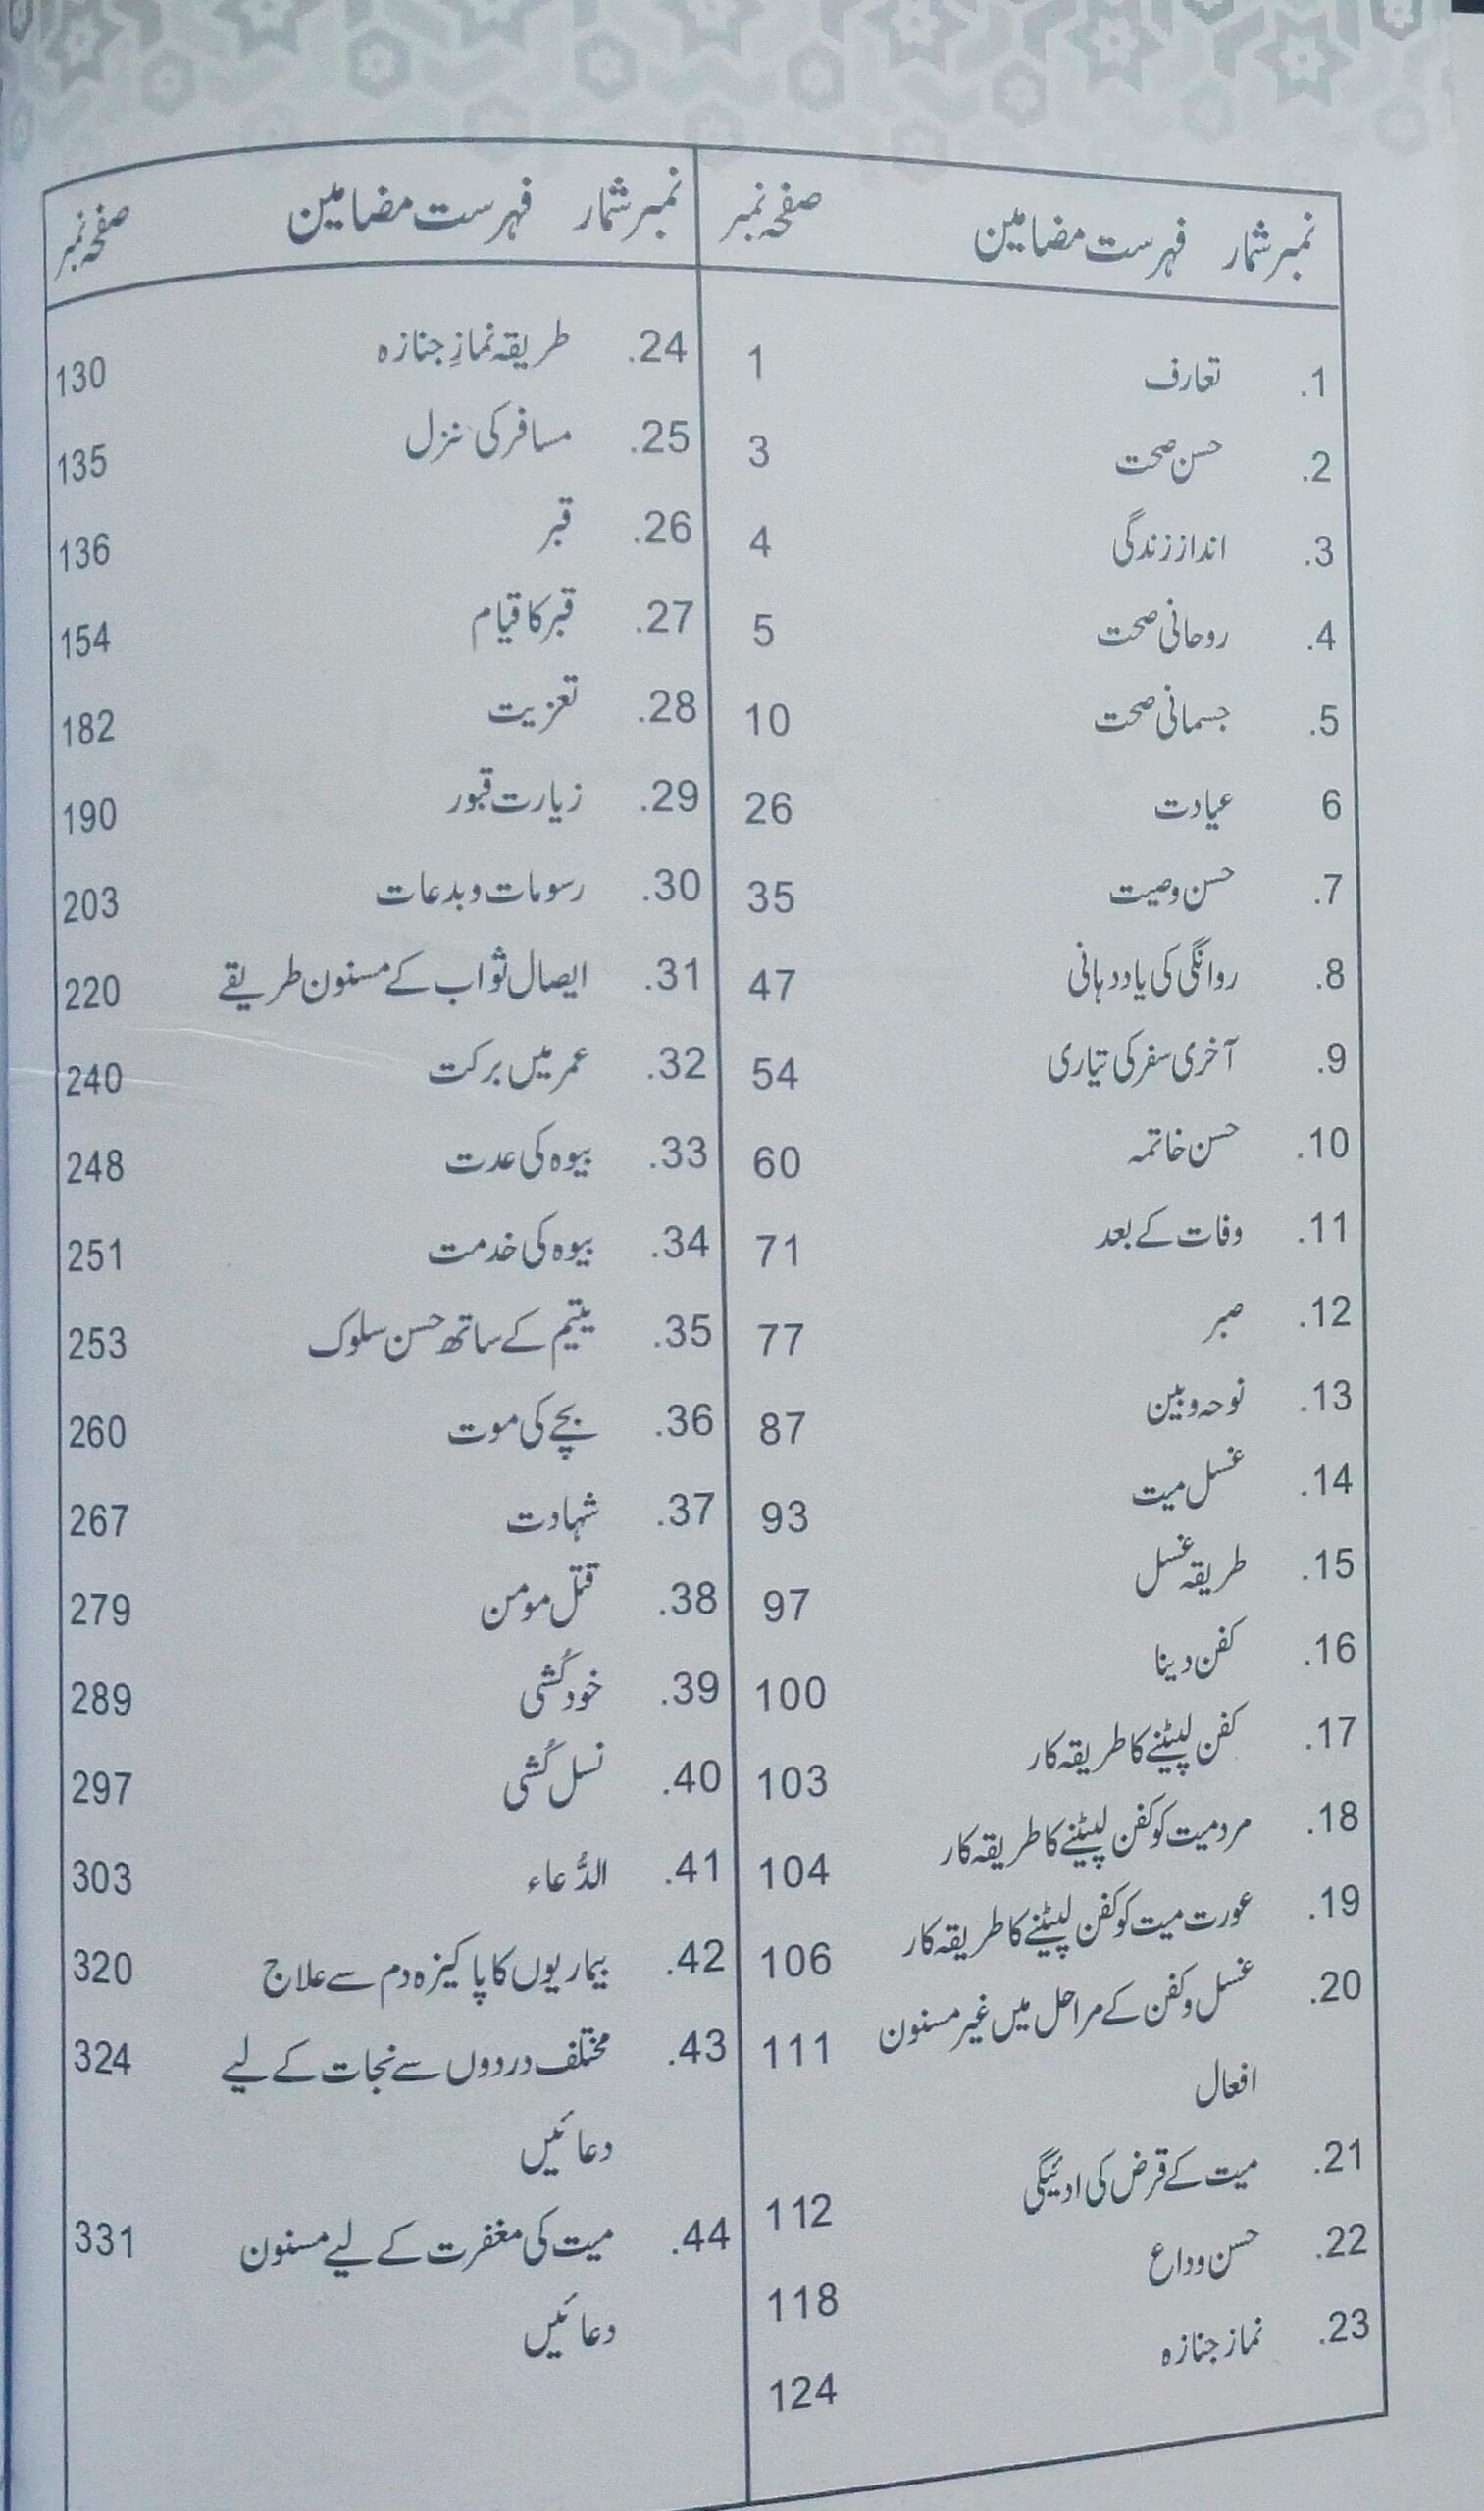 نمبر شمار فہرست مضامین صفحہ نمبر
1. تعارف 1
2. حسن صحت 3
3. انداز زندگی 4
4. روحانی صحت 5
5. جسمانی صحت 10
6 عیادت 26
7. حسن وصیت 35
8. روانگی کی یاد دہانی 47
9. آخری سفر کی تیاری 54
10. حسن خاتمہ 60
11. وفات کے بعد 71
12. صبر 77
13. نوحہ و بین 87
14. غسل میت 93
15. طریقہ غسل 97
16. کفن دینا 100
17. کفن لپیٹنے کا طریقہ کار 103
18. مرد میت کو کفن لپیٹنے کا طریقہ کار 104
19. عورت میت کو کفن لپیٹنے کا طریقہ کار 106
20. غسل و کفن کے مراحل میں غیر مسنون 111
افعال
21. میت کے قرض کی ادئیگی 112
22. حسن وداع 118
23. نماز جنازہ 124
نمبر شمار فہرست مضامین صفحہ نمبر
24. طریقہ نمازِ جنازہ 130
25. مسافر کی منزل 135
26. قبر 136
27. قبر کا قیام 154
28. تعزیت 182
29. زیارت قبور 190
30. رسومات و بدعات 203
31. ایصال ثواب کے مسنون طریقے 220
32. عمر میں برکت 240
33. بیوہ کی عدت 248
34. بیوہ کی خدمت 251
35. یتیم کے ساتھ حسن سلوک 253
36. بچے کی موت 260
37. شہادت 267
38. قتل مومن 279
39. خودکُشی 289
40. نسل کُشی 297
41. الدُّعاء 303
42. بیماریوں کا پاکیزہ دم سے علاج 320
43. مختلف دردوں سے نجات کے لیے 324
دعائیں
44. میت کی مغفرت کے لیے مسنون 331
دعائیں